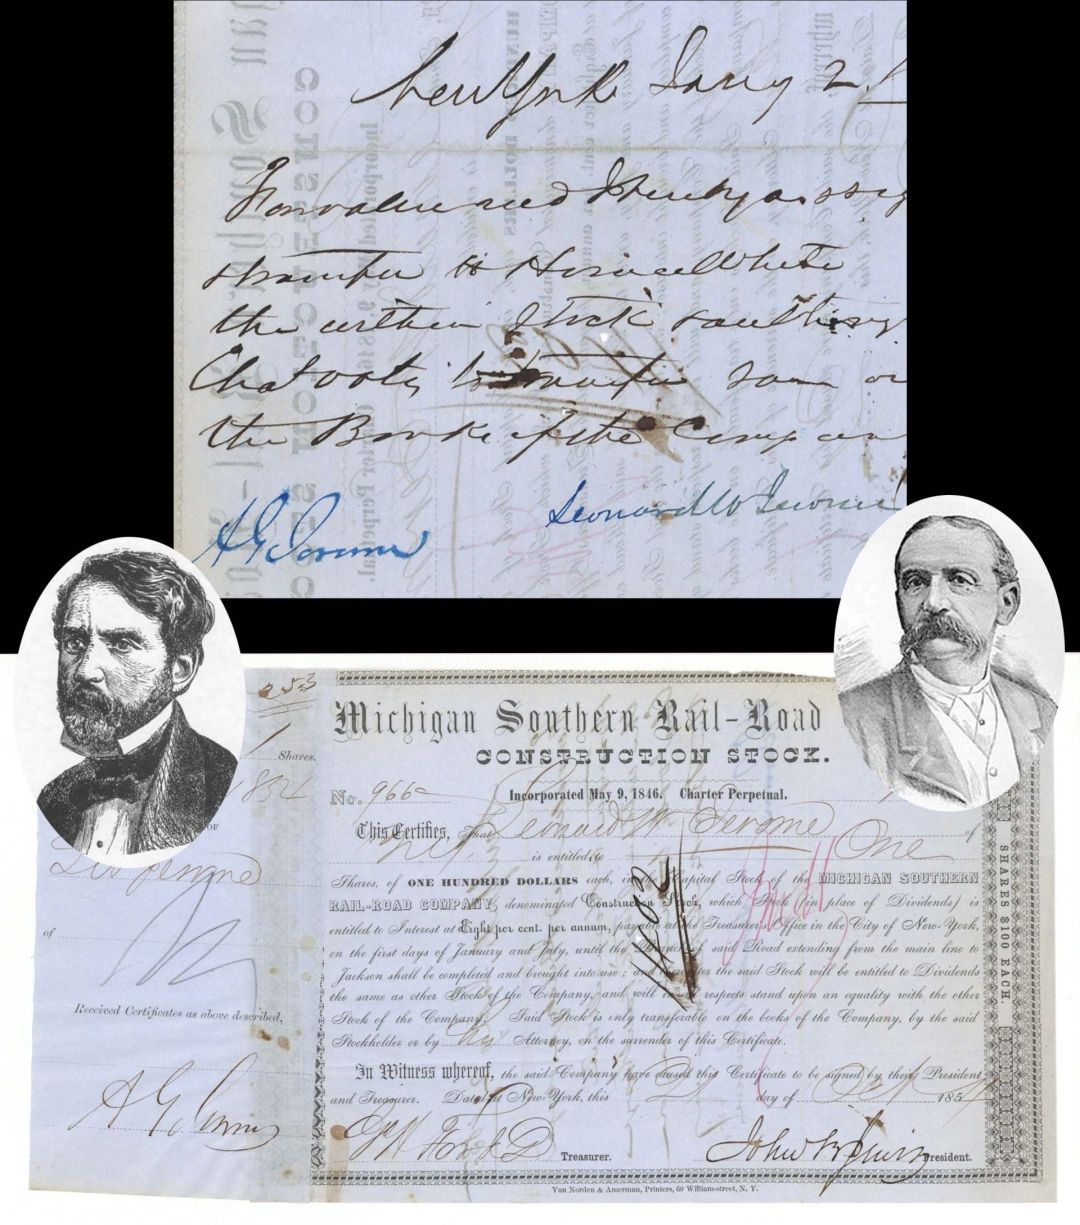 New York Jany 2
For value recd I hereby assig
transfer to Horace White
the within Stock
to transfer same on
the Books of the Compan
A G Jerome
Leonard W Jerome
253
1
Shares.
1854
OF
of
Received Certificates as above described,
A G Jerome
Michigan Southern Rail-Road
CONSTRUCTION STOCK.
No. 966
Incorporated May 9, 1846. Charter Perpetual.
This Certifies, That Leonard W. Jerome of
N.Y. is entitled to One
Shares, of ONE HUNDRED DOLLARS each, in the Capital Stock of the MICHIGAN SOUTHERN
RAIL-ROAD COMPANY, denominated Construction Stock, which Stock (in place of Dividends) is
entitled to Interest at Eight per cent. per annum, payable at the Treasurer's Office in the City of New-York,
on the first days of January and July, until the Branch of said Road extending from the main line to
Jackson shall be completed and brought into use; and thereafter the said Stock will be entitled to Dividends
the same as other Stock of the Company, and will in all respects stand upon an equality with the other
Stock of the Company. Said Stock is only transferable on the books of the Company, by the said
Stockholder or by his Attorney, on the surrender of this Certificate.
In Witness whereof, the said Company have caused this Certificate to be signed by their President
and Treasurer. Dated at New-York, this day of 1854
Treasurer.
President.
SHARES $100 EACH.
Van Norden & Amerman, Printers, 60 William-street, N. Y.